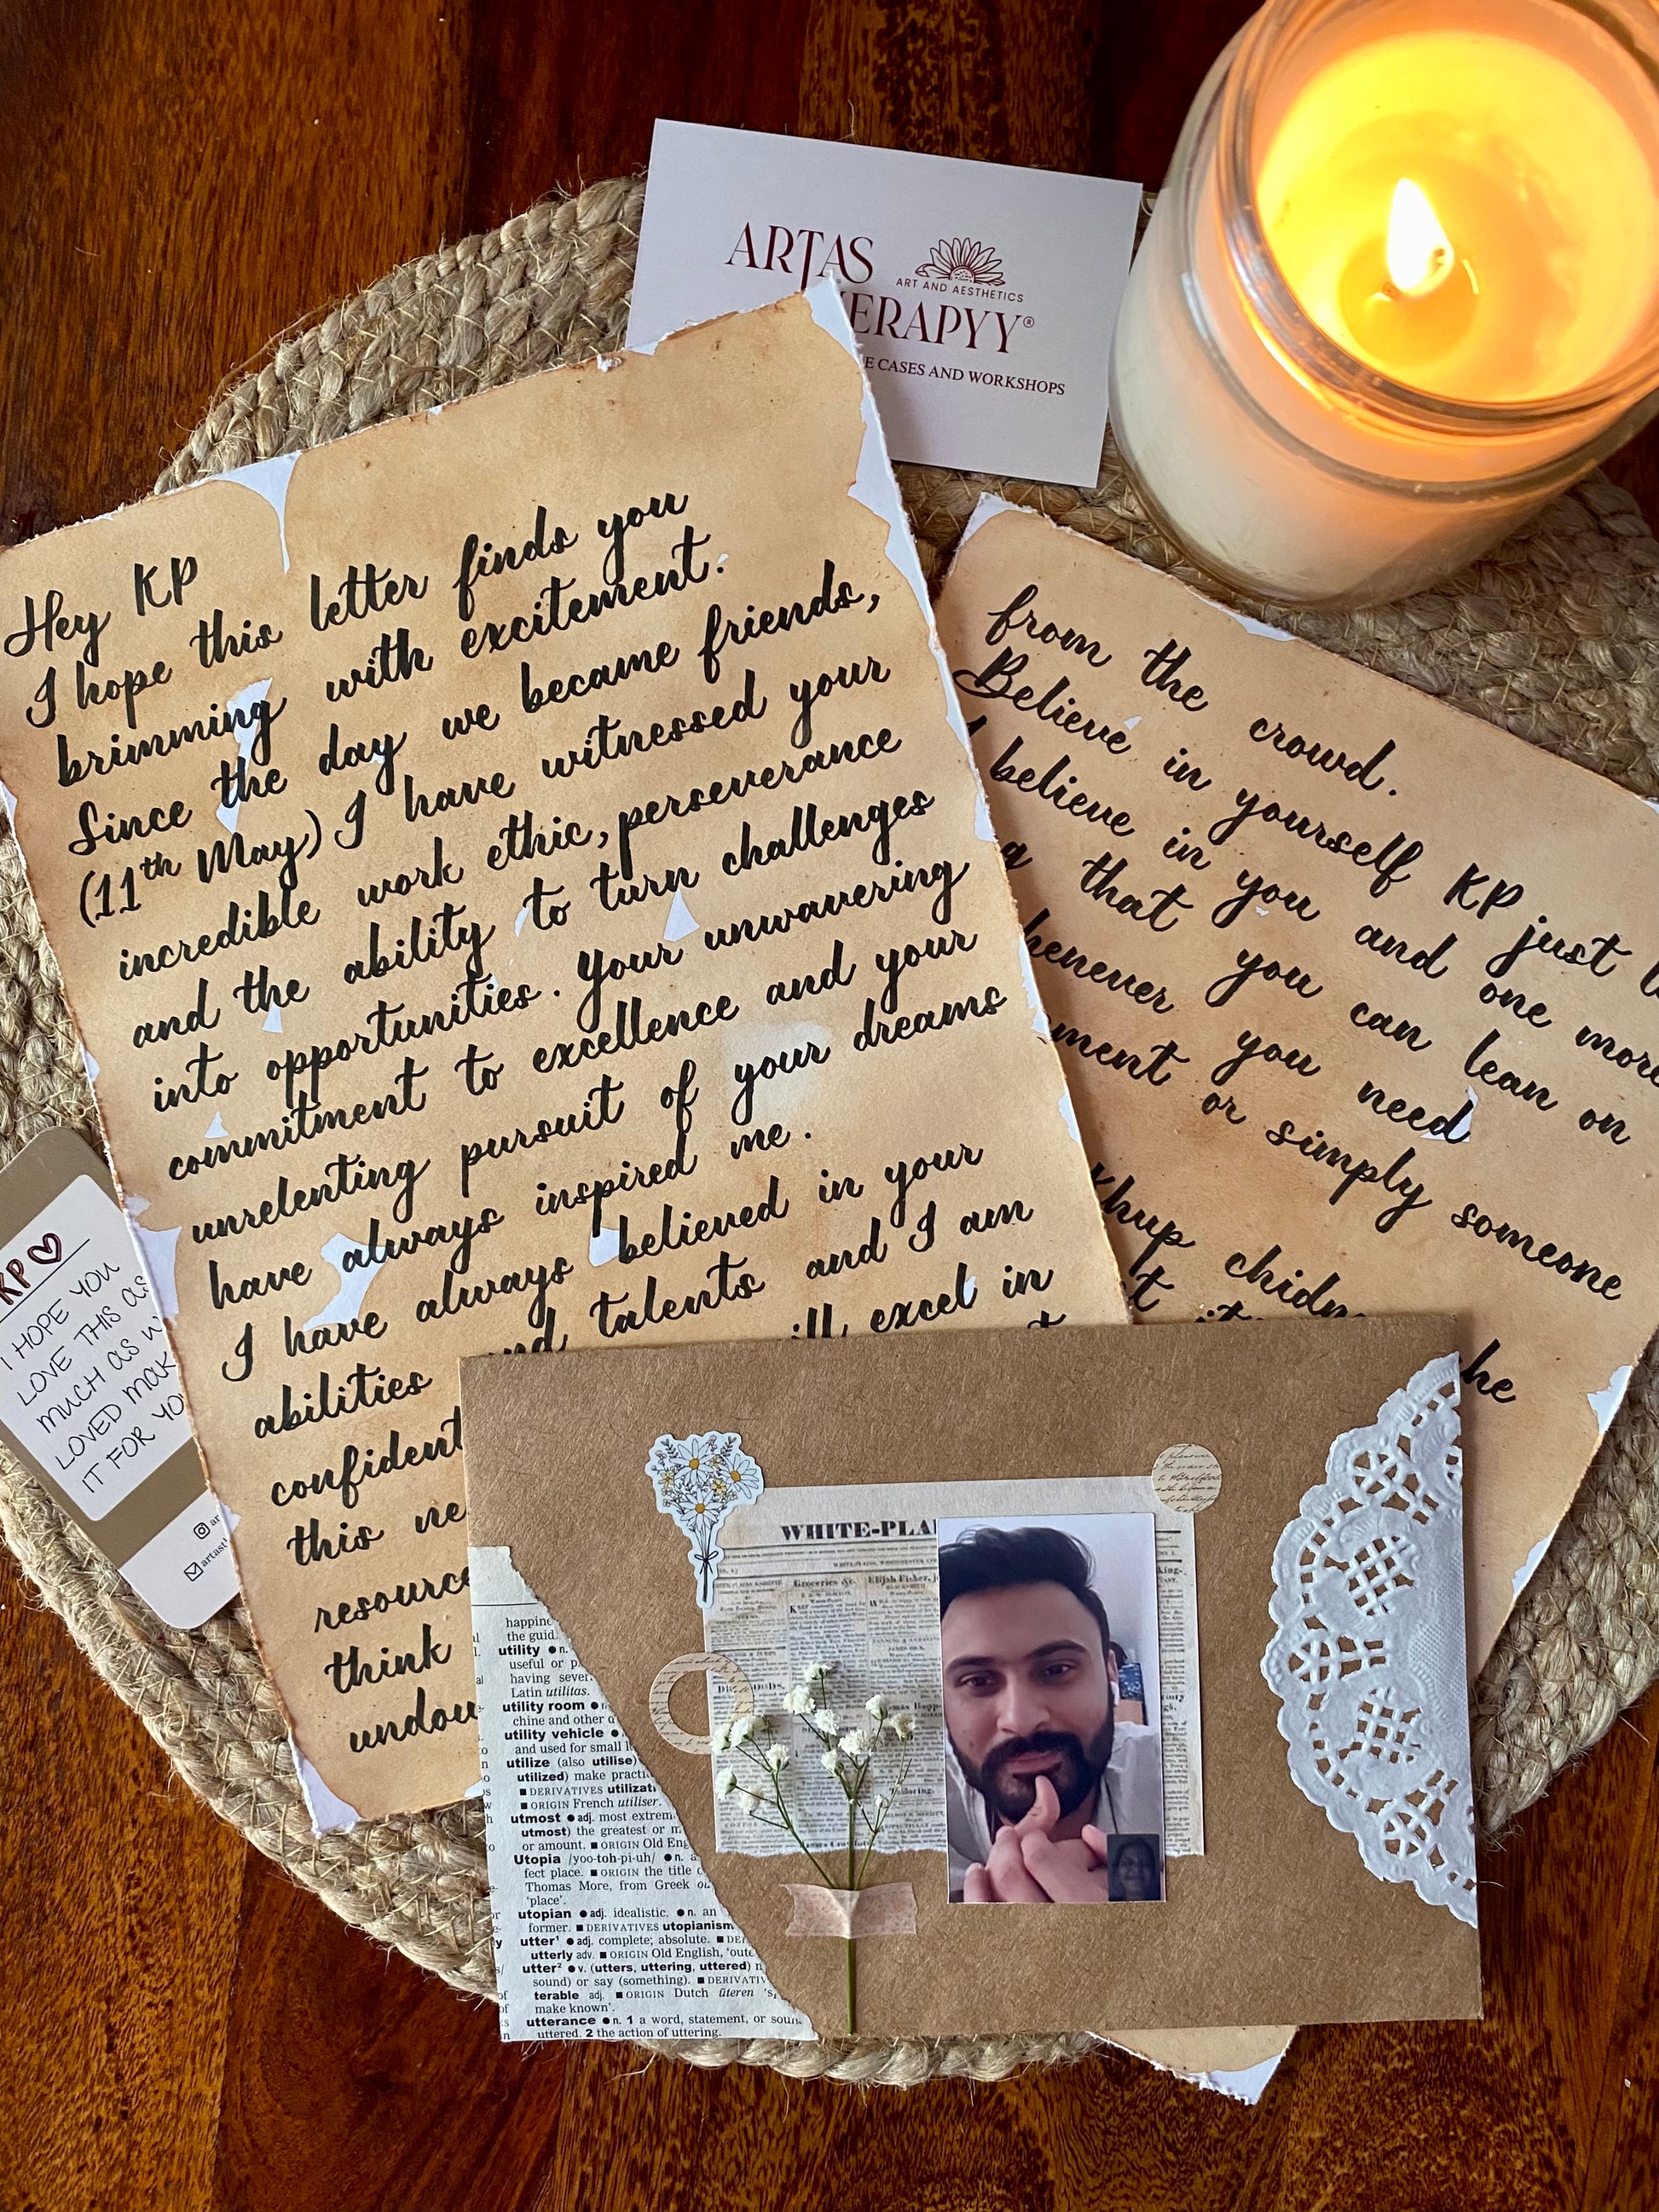 ARTAS
ART AND AESTHETICS
ERAPYY®
E CASES AND WORKSHOPS
Hey KP
I hope this letter finds you
brimming with excitement.
Since the day we became friends,
(11th May) I have witnessed your
incredible work ethic, perseverance
and the ability to turn challenges
into opportunities. Your unwavering
commitment to excellence and your
unrelenting pursuit of your dreams
have always inspired me.
I have always believed in your
abilities nd talents and I am
confident ill excel in
this ne
resource
think
undou
from the crowd.
Believe in yourself KP just
I believe in you and one more
that you can lean on
henever you need
ment or simply someone
khup chidn
t it
he
KP
I HOPE YOU
LOVE THIS AS
MUCH AS W
LOVED MAK
IT FOR YO
ar
artast
WHITE-PLA
Groceries &c.
Elijah Fisher, j
happine
the guid
utility ● n.
useful or p
having sever
Latin utilitas.
utility room ● n
chine and other
utility vehicle ●
and used for small l
utilize (also utilise)
utilized) make practi
■ DERIVATIVES utilizat
■ ORIGIN French utiliser.
utmost ● adj. most extrem
utmost) the greatest or m
or amount. ■ ORIGIN Old Eng
Utopia /yoo-toh-pi-uh/ ● n. a
fect place. ■ ORIGIN the title
Thomas More, from Greek ou
'place'.
utopian ● adj. idealistic. ● n. an
former. ■ DERIVATIVES utopianism
utter¹ ● adj. complete; absolute. ■ DE
utterly adv. ■ ORIGIN Old English, 'oute
utter² ● v. (utters, uttering, uttered)
sound) or say (something). ■ DERIVATIV
terable adj. ■ ORIGIN Dutch ūteren 's
make known'.
utterance ● n. 1 a word, statement, or soun
uttered. 2 the action of uttering.